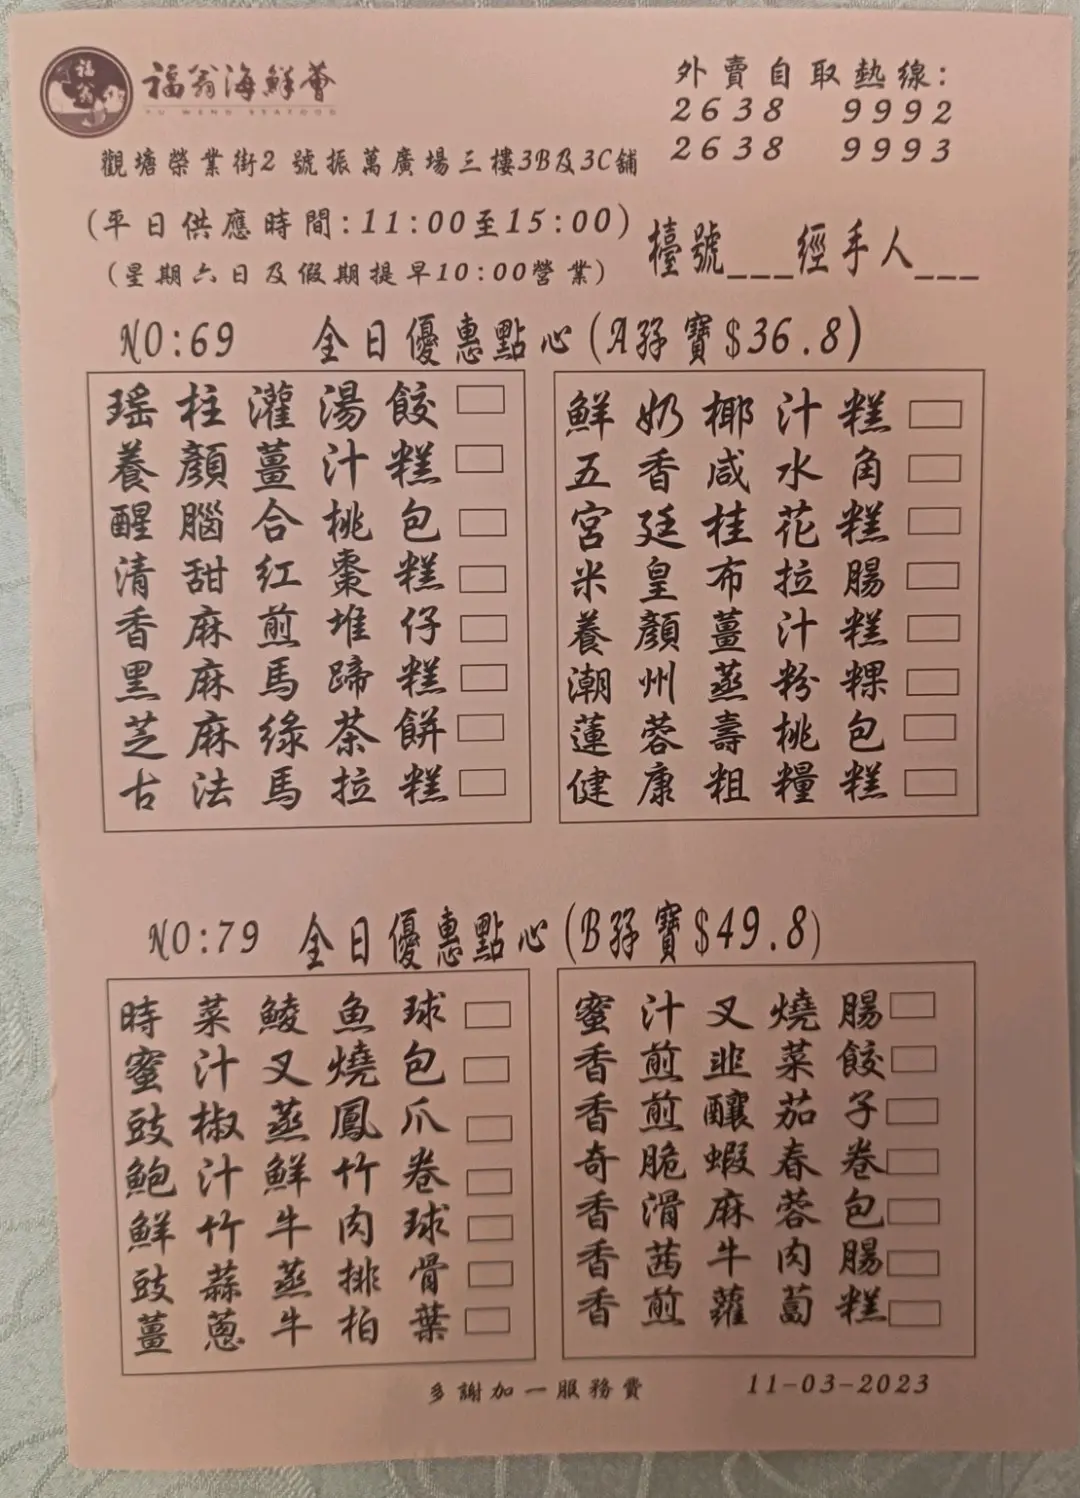 福翁海鮮薈
FU WENG SEAFOOD
外賣自取熱線:
2638 9992
2638 9993
觀塘榮業街2 號振萬廣場三樓3B及3C舖
(平日供應時間:11:00至15:00)
(星期六日及假期提早10:00營業)
檯號___經手人___
NO:69 全日優惠點心(A孖寶$36.8)
瑤柱灌湯餃
養顏薑汁糕
醒腦合桃包
清甜紅棗糕
香麻煎堆仔
黑麻馬蹄糕
芝麻綠茶餅
古法馬拉糕
鮮奶椰汁糕
五香咸水角
宮廷桂花糕
米皇布拉腸
養顏薑汁糕
潮州蒸粉粿
蓮蓉壽桃包
健康粗糧糕
NO:79 全日優惠點心(B孖寶$49.8)
時菜鯪魚球
蜜汁叉燒包
豉椒蒸鳳爪
鮑汁鮮竹卷
鮮竹牛肉球
豉蒜蒸排骨
薑蔥牛柏葉
蜜汁叉燒腸
香煎韭菜餃
香煎釀茄子
奇脆蝦春卷
香滑麻蓉包
香茜牛肉腸
香煎蘿蔔糕
多謝加一服務費
11-03-2023